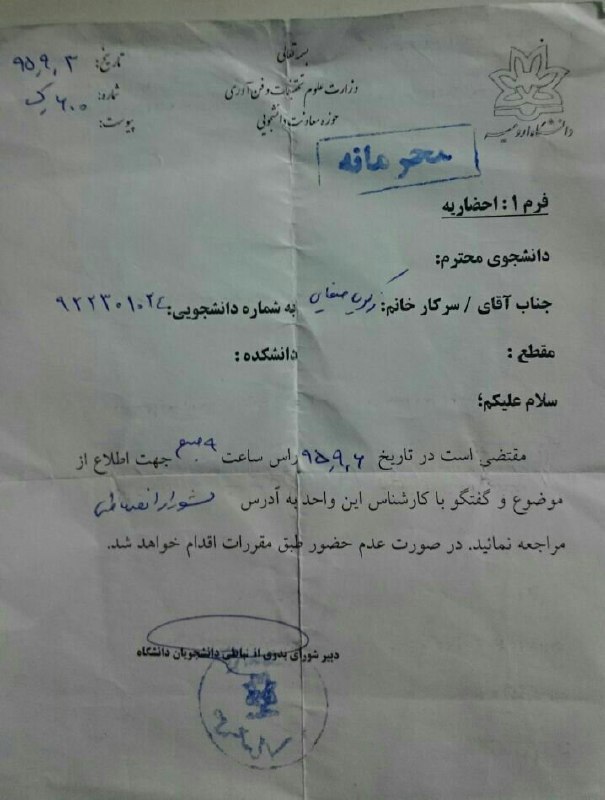 بسمه تعالی
وزارت علوم تحقیقات و فن آوری
حوزه معاونت دانشجویی
دانشگاه ارومیه
تاریخ: ۹۵،۹،۳
شماره: ۶۰۰
پیوست:
محرمانه
فرم ۱: احضاریه
دانشجوی محترم:
جناب آقای / سرکار خانم: به شماره دانشجویی: ۹۲۲۳۰۱۰۲۴
مقطع : دانشکده :
سلام علیکم؛
مقتضی است در تاریخ ۹۵،۹،۶ راس ساعت ۹ صبح جهت اطلاع از
موضوع و گفتگو با کارشناس این واحد به آدرس شورای انضباطی
مراجعه نمائید. در صورت عدم حضور طبق مقررات اقدام خواهد شد.
دبیر شورای بدوی انضباطی دانشجویان دانشگاه